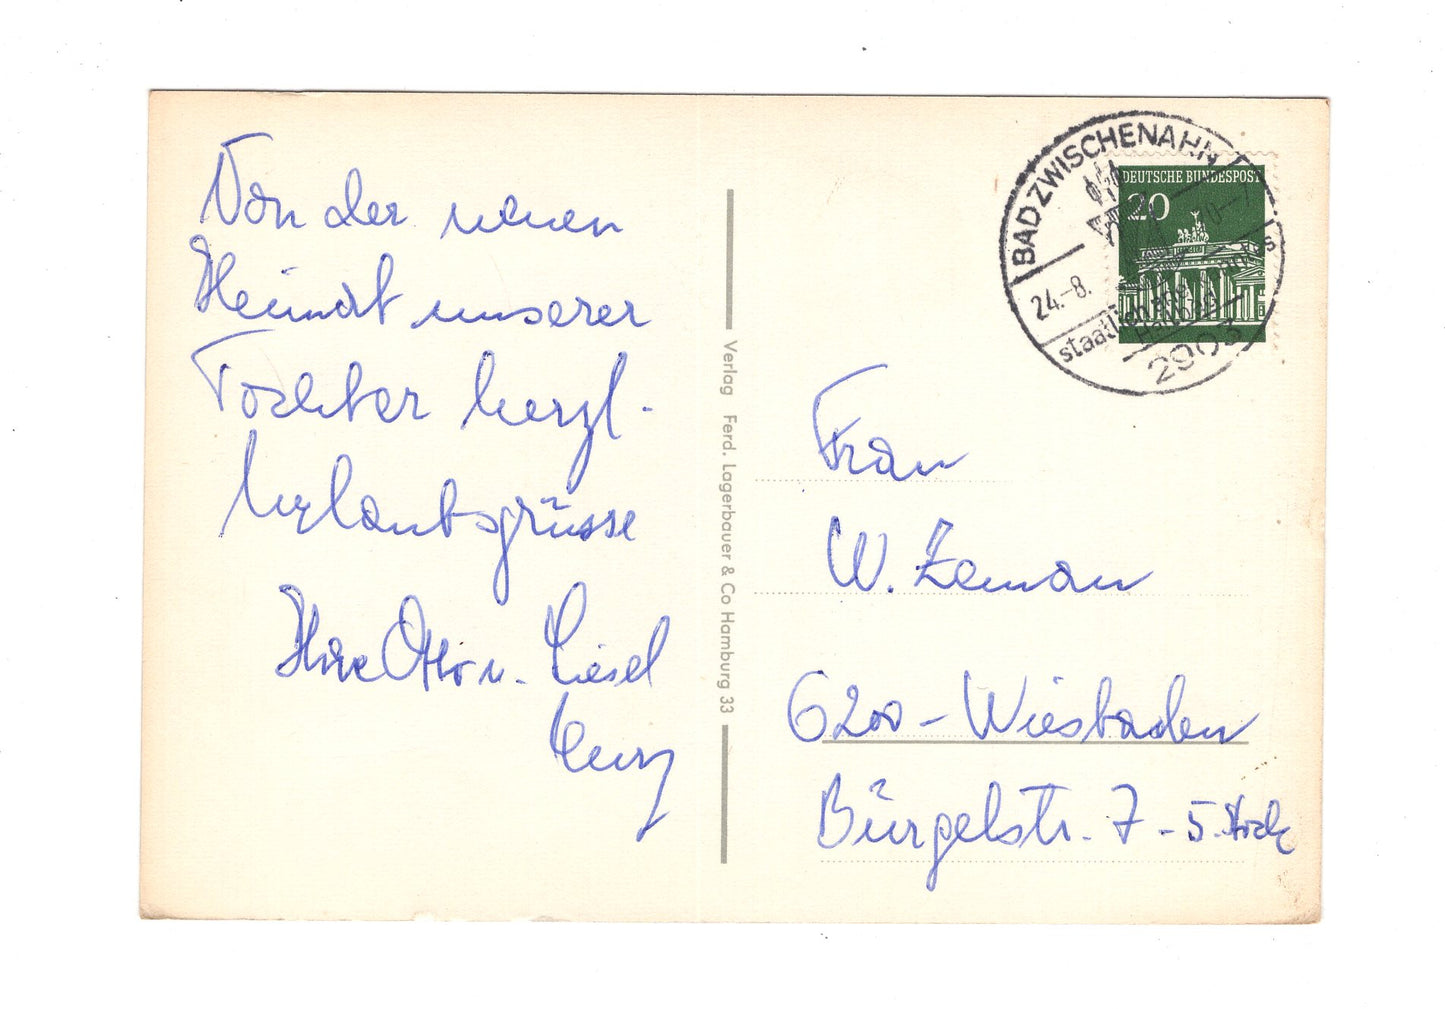 Von der neuen
Heimat unserer
Tochter herzl.
Urlaubsgrüsse
Ihre Otto u. Liesel
Verlag Ferd. Lagerbauer & Co Hamburg 33
BAD ZWISCHENAHN
24.-8.
staatlich
2903
DEUTSCHE BUNDESPOST
20
Frau
W. Zeman
6200 - Wiesbaden
Bürgelstr. 7 - 5. Stock